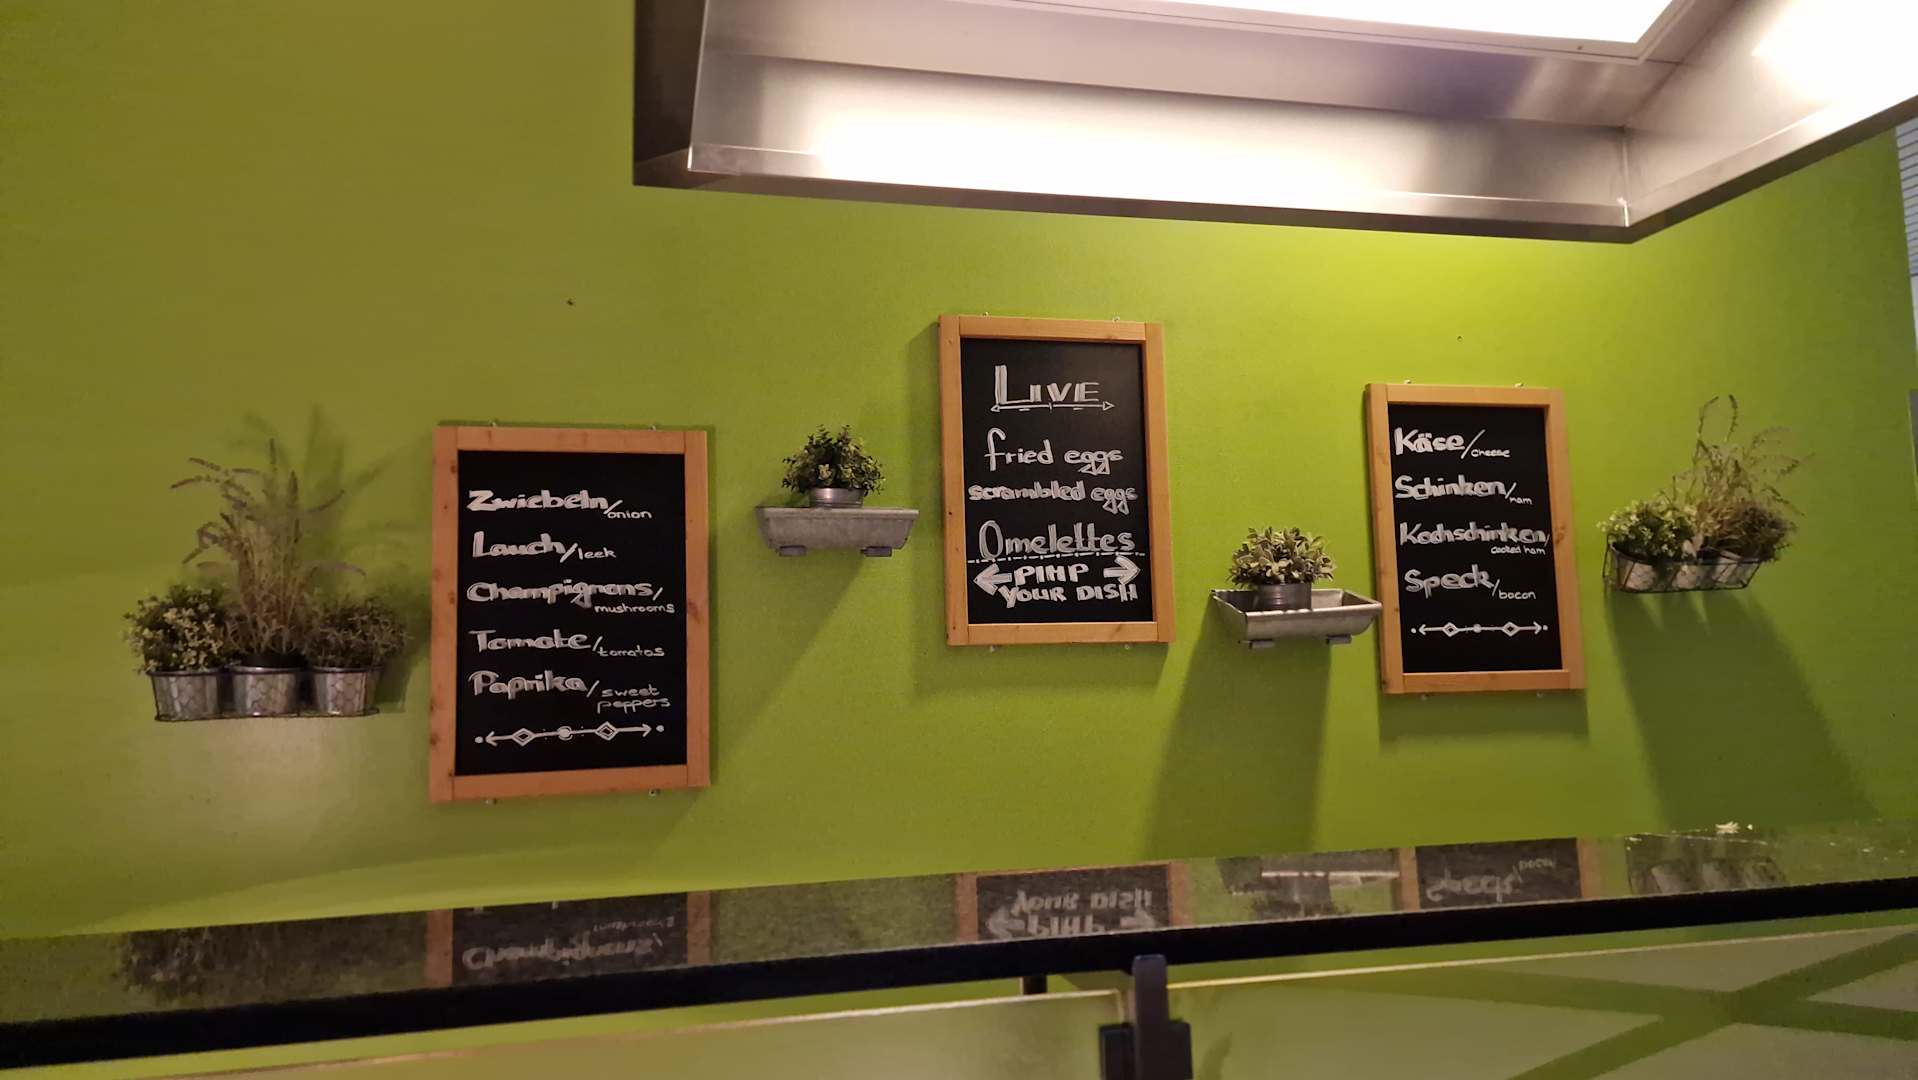 Zwiebeln/onion
Lauch/leek
Champignons/
mushrooms
Tomate/tomatos
Paprika/sweet
peppers
LIVE
fried eggs
scrambled eggs
Omelettes
PIMP
YOUR DISH
Käse/cheese
Schinken/ham
Kochschinken/
cooked ham
Speck/bacon